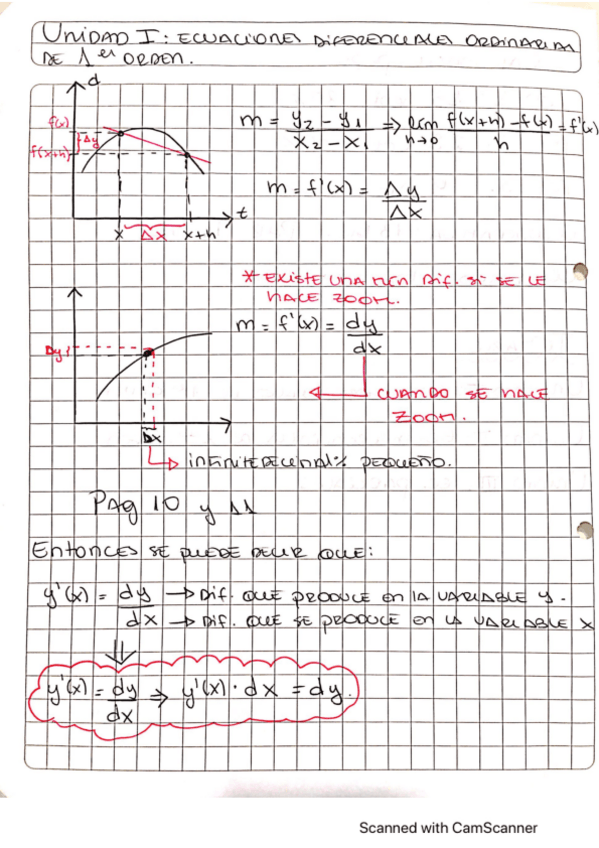 UNIDAD I: ECUACIONES DIFERENCIALES ORDINARIAS
DE 1er ORDEN.
d
f(x)
Δy
f(x+h)
x Δx x+h
t
m = y₂ - y₁ / x₂ - x₁ => lim h→0 f(x+h) - f(x) / h = f'(x)
m = f'(x) = Δy / Δx
* EXISTE UNA MIN DIF. SI SE LE
HACE ZOOM.
m = f'(x) = dy / dx
CUANDO SE HACE
ZOOM.
Dy
Dx
INFINITEDECIMAL% PEQUEÑO.
Pag 10 y 11
Entonces SE PUEDE DECIR QUE:
y'(x) = dy → DIF. QUE PRODUCE EN LA VARIABLE y.
dx → DIF. QUE SE PRODUCE EN LA VARIABLE X
y'(x) = dy / dx => y'(x) · dx = dy.
Scanned with CamScanner